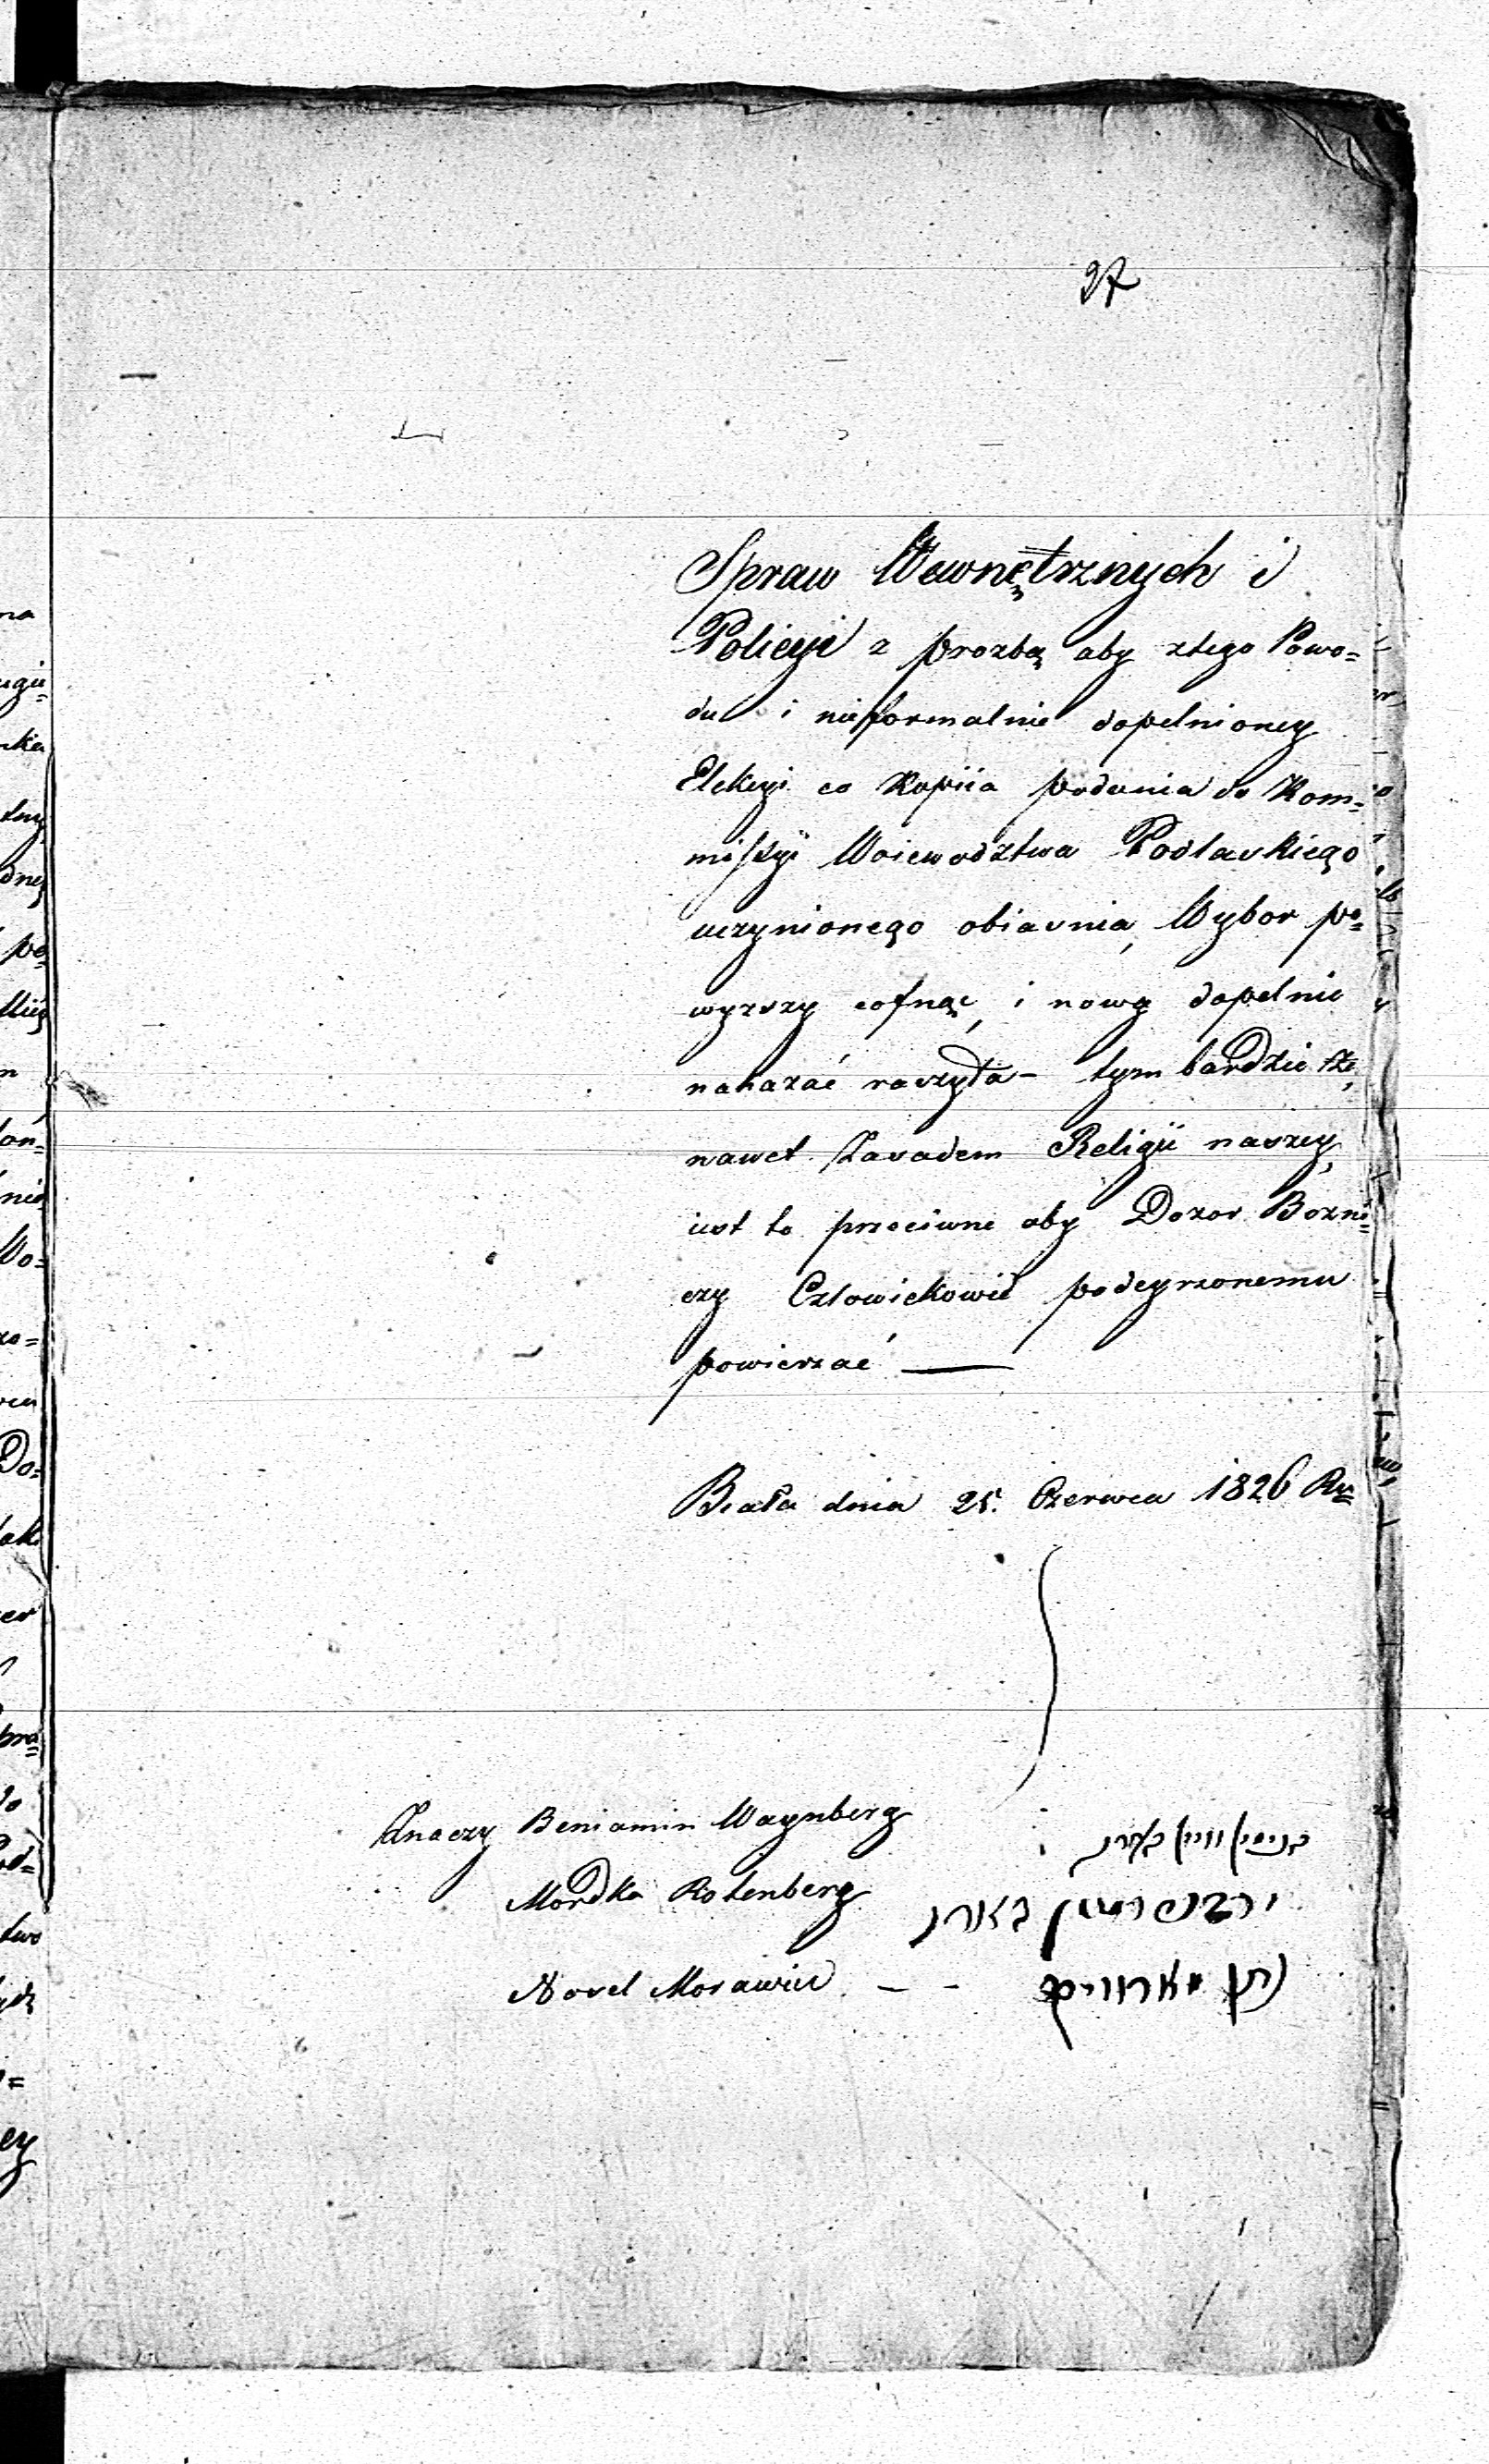 97
Spraw Wewnętrznych i
Policyi z prozbą aby ztego Powo=
du i nieformalnie dopełnioney
Elekcyi co Kopiia podania do Kom=
missyi Woiewodztwa Podlaskiego
uczynionego obiasnia, Wybor po=
wyzszy cofnąć, i nową dopełnic
nakazać raczyła – tym bardzie że,
nawet Zasadem Religii naszey,
iest to przeciwne aby Dozor Bozni=
czy Człowiekowi podeyrzonemu
powierzać —
Biała dnia 25. Czerwca 1826 Ru=
Znaczy Beniamin Waynberg בנימין וויין בערג
Mordka Rotenberg
Nosel Morawiec – – נתן מאראוויץ